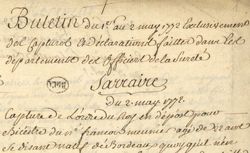 Buletin du 1er au 2 may 1772 Exclusivement
des Captures & declarations faittes dans les
departements des officiers de la Sureté
Sarraire
du 2. may 1772.
Capture de L'ordre du Roy en depost pour
Bicêtre du né francois meunier agé de 20 ans
se disant natif de Bordeaux, quoy qu'il n'en